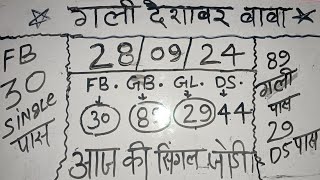 गली देशावर बाबा
FB
30
Single
पास
28/09/24
FB. GB. GL. DS.
30 85 29 44
आज की सिंगल जोड़ी
89
गली
पास
29
DS पास